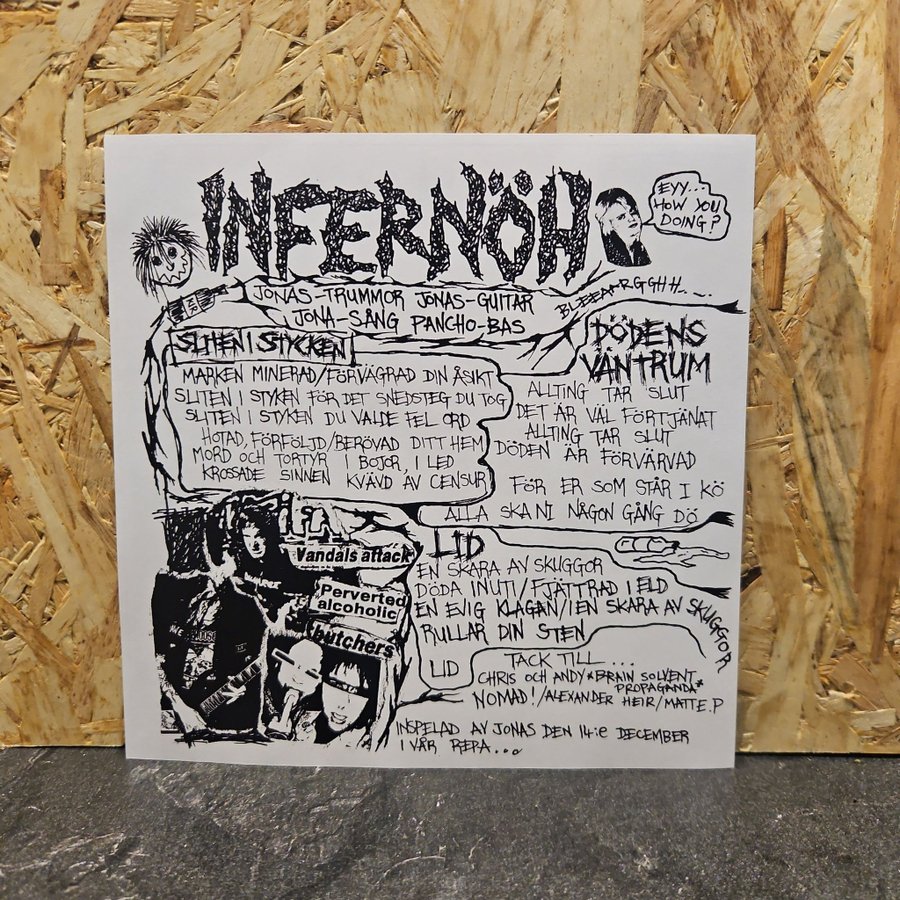 INFERNÖH
EYY...
HOW YOU
DOING?
JONAS-TRUMMOR JONAS-GUITAR
JONA-SÅNG PANCHO-BAS
BLEEAARGGHH....
SLITEN I STYCKEN
MARKEN MINERAD/FÖRVÄGRAD DIN ÅSIKT
SLITEN I STYKEN FÖR DET SNEDSTEG DU TOG
SLITEN I STYKEN DU VALDE FEL ORD
HOTAD, FÖRFÖLJD/BERÖVAD DITT HEM
MORD OCH TORTYR I BOJOR, I LED
KROSSADE SINNEN KVÄVD AV CENSUR
DÖDENS
VÄNTRUM
ALLTING TAR SLUT
DET ÄR VÄL FÖRTJÄNAT
ALLTING TAR SLUT
DÖDEN ÄR FÖRVÄRVAD
FÖR ER SOM STÅR I KÖ
ALLA SKA NI NÅGON GÅNG DÖ
Vandals attack
Perverted
alcoholic
butchers
LID
EN SKARA AV SKUGGOR
DÖDA INUTI/FJÄTTRAD I ELD
EN EVIG KLAGAN/I EN SKARA AV SKUGGOR
RULLAR DIN STEN
LID
TACK TILL...
CHRIS OCH ANDY *BRAIN SOLVENT
PROPAGANDA*
NOMAD!/ALEXANDER HEIR/MATTE.P
INSPELAD AV JONAS DEN 14:e DECEMBER
I VÅR REPA...